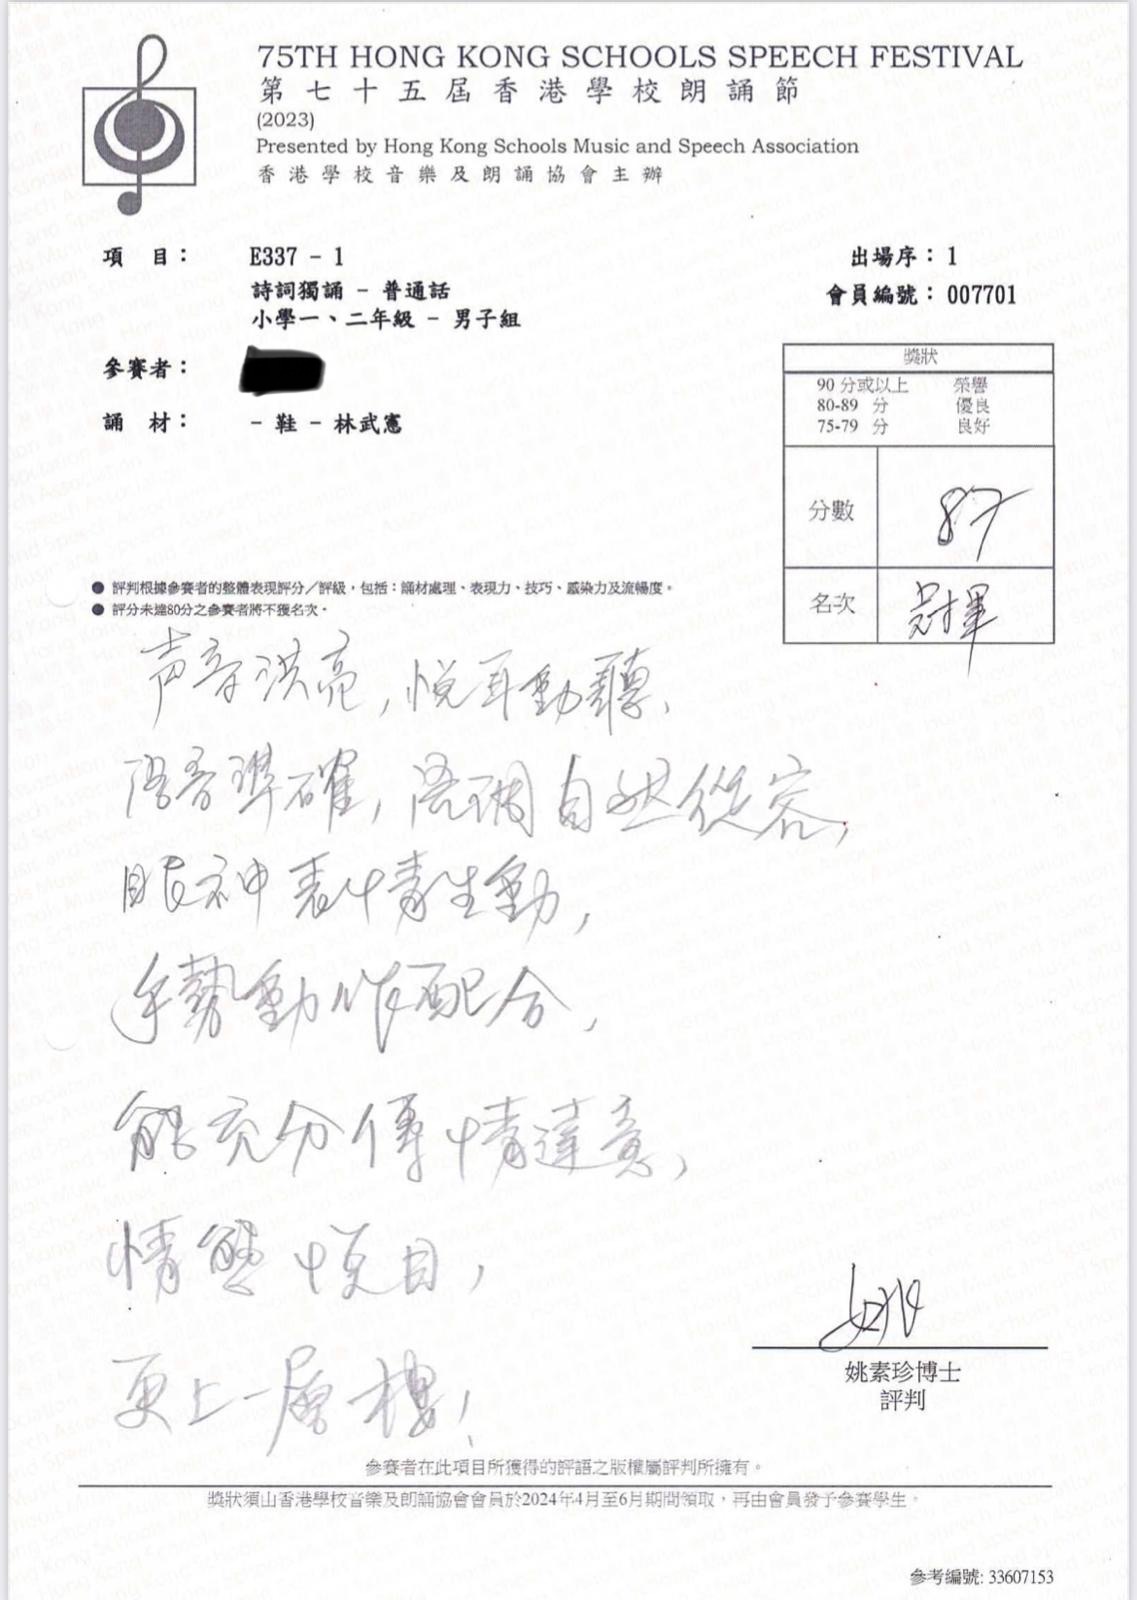 75TH HONG KONG SCHOOLS SPEECH FESTIVAL
第七十五屆香港學校朗誦節
(2023)
Presented by Hong Kong Schools Music and Speech Association
香港學校音樂及朗誦協會主辦
項 目： E337 - 1
詩詞獨誦 - 普通話
小學一、二年級 - 男子組
出場序：1
會員編號：007701
參賽者：
誦 材： - 鞋 - 林武憲
獎狀
90 分或以上 榮譽
80-89 分 優良
75-79 分 良好
分數 87
名次 冠軍
● 評判根據參賽者的整體表現評分／評級，包括：誦材處理、表現力、技巧、感染力及流暢度。
● 評分未達80分之參賽者將不獲名次。
声音洪亮,悦耳動聽,
語音準確,語調自然從容,
眼神表情生動,
手勢動作配合,
能充分傳情達意,
情態悅目,
更上一層樓!
姚
姚素珍博士
評判
參賽者在此項目所獲得的評語之版權屬評判所擁有。
獎狀須由香港學校音樂及朗誦協會會員於2024年4月至6月期間領取，再由會員發予參賽學生。
參考編號: 33607153